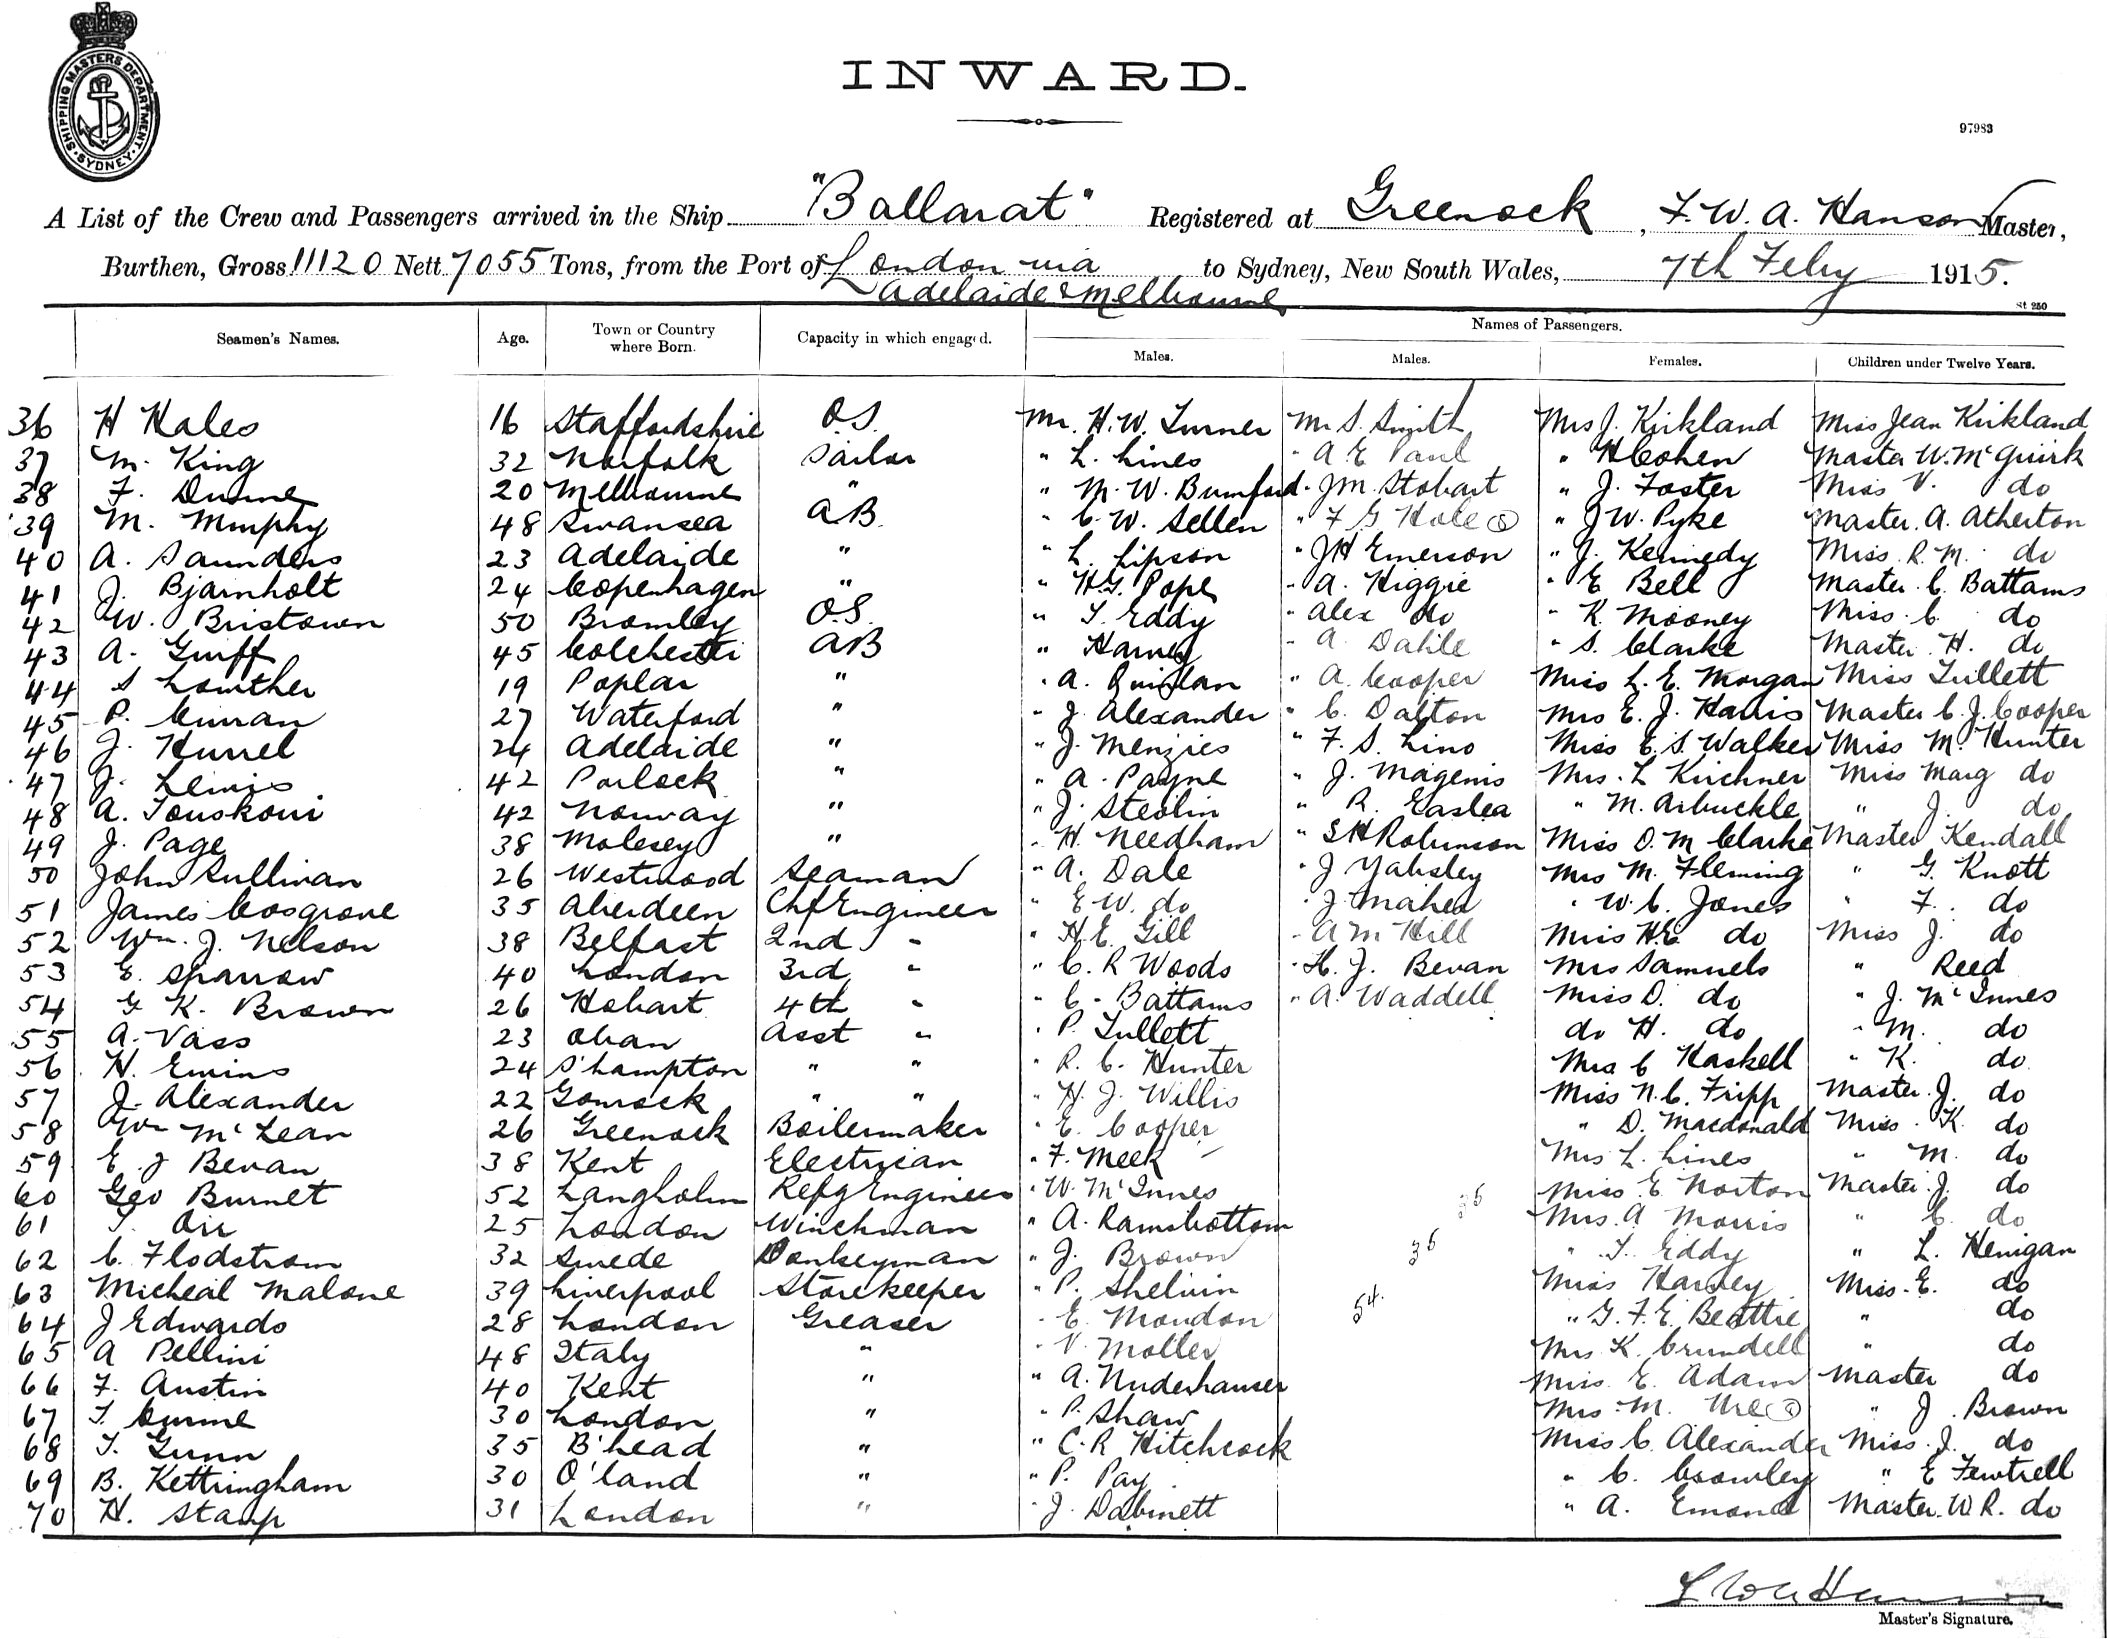 SHIPPING MASTERS DEPARTMENT
SYDNEY
INWARD.
97983
A List of the Crew and Passengers arrived in the Ship "Ballarat" Registered at Greenock, F. W. A. Hanson Master,
Burthen, Gross 11120 Nett 7055 Tons, from the Port of London via to Sydney, New South Wales, 7th Feby 1915.
Adelaide & Melbourne
St 250
Seamen's Names. Age. Town or Country where Born. Capacity in which engaged. Names of Passengers.
Males. Males. Females. Children under Twelve Years.
36 H Hales 16 Staffordshire O.S. Mr. H. W. Turner Mr S. Smith Mrs J. Kirkland Miss Jean Kirkland
37 M. King 32 Norfolk Sailor " L. Lines " A E Paul " H Cohen Master W. McGuirk
38 F. Dunne 20 Melbourne " " M. W. Bumford " J M. Stobart " J. Foster Miss V. do
39 M. Murphy 48 Swansea AB. " C. W. Sellen " F G Hole " J W. Pyke Master. A. Atherton
40 A. Saunders 23 Adelaide " " L. Lipson " J H Emerson " J. Kennedy Miss R. M. do
41 J. Bjarnholt 24 Copenhagen " " H. G. Pope " A. Higgie " E Bell Master C. Battams
42 W. Bristown 50 Bromley O.S. " T. Eddy " Alex do " K. Mooney Miss C. do
43 A. Griff 45 Colchester AB " Harvey " A Dahle " S. Clarke Master H. do
44 S Lowther 19 Poplar " " A. Quinlan " A. Cooper Miss L. E. Morgan Miss Tullett
45 P. Curran 27 Waterford " " J. Alexander " C. Dalton Mrs E. J. Harris Master C. J. Cooper
46 J. Hurrel 24 Adelaide " " J. Menzies " F. S. Lino Miss E. S. Walker Miss M. Hunter
47 J. Lewis 42 Porlock " " A. Payne " J. Magenis Mrs. L Kirchner Miss Marg do
48 A. 42 Norway " " J. Stedlin " R. Easlea " M. Arbuckle " J. do
49 J. Page 38 Molesey " " H. Needham " S H Robinson Miss D. M Clarke Master Kendall
50 John Sullivan 26 Westwood Seaman " A. Dale " J Yabsley Mrs M. Fleming " G. Knott
51 James Cosgrove 35 Aberdeen Chf Engineer " E W. do " J Maher " W. C. Jones " F. do
52 Wm. J. Nelson 38 Belfast 2nd " " H. E. Gill " A M Hill Miss H. E. do Miss J. do
53 E. Sparrow 40 London 3rd " " C. R Woods " H. J. Bevan Mrs Samuels " Reed
54 G K. Brown 26 Hobart 4th " " C. Battams " A. Waddell Miss D. do " J. McInnes
55 A. Vass 23 Oban Asst " " P. Tullett do H. do " M. do
56 H. Emins 24 S'hampton " " " R. C. Hunter Mrs C Haskell " K. do
57 J. Alexander 22 Gourock " " " H. J. Willis Miss N. C. Fripp Master. J. do
58 Wm McLean 26 Greenock Boilermaker " E. Cooper " D. Macdonald Miss K. do
59 E. J Bevan 38 Kent Electrician " F. Meek Mrs L. Lines " M. do
60 Geo Burnet 52 Langholm Refg Engineer " W. McInnes Miss E. Norton Master J. do
61 T. Orr 25 London Winchman " A. Ramsbottom 36 Mrs. A Morris " C. do
62 C. Flodstrom 32 Swede Donkeyman " J. Brown 36 " T. Eddy " L. Henigan
63 Micheal Malone 39 Liverpool Storekeeper " P. Shelvin Miss Harvey Miss. E. do
64 J Edwards 28 London Greaser " E. Mondon 54. " G. F. E. Beattie " do
65 A Pellini 48 Italy " " V. Moller Mrs K. Crundell " do
66 F. Austin 40 Kent " " A. Nuderhauser Miss E. Adam Master do
67 T. 30 London " " P. Shaw Mrs. M. Ure " J. Brown
68 T. Gunn 35 B'head " " C. R Hitchcock Miss C. Alexander Miss. J. do
69 B. Kettringham 30 O'land " " P. Pay " C. Crowley " E Fewtrell
70 H. Stamp 31 London " " J. Dabinett " A. Emond Master. W R. do
Master's Signature.